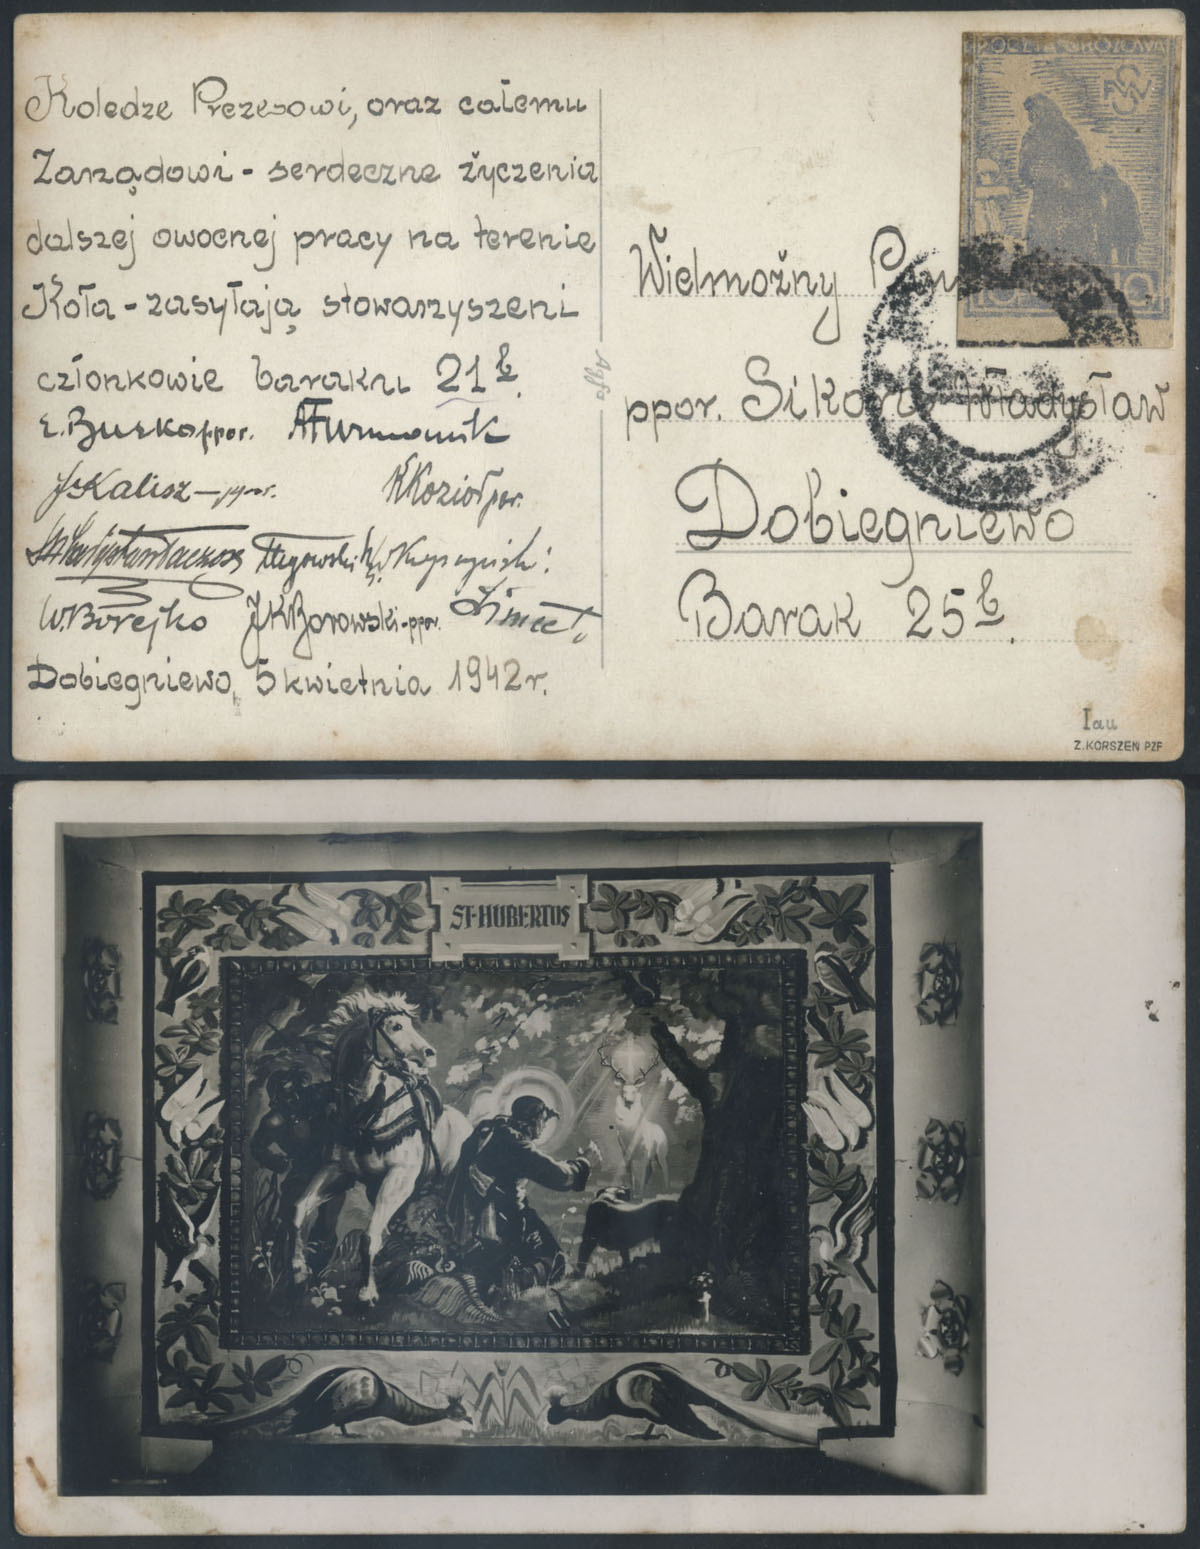 Koledze Prezesowi, oraz całemu
Zarządowi - serdeczne życzenia
dalszej owocnej pracy na terenie
Koła - zasyłają stowarzyszeni
członkowie baraku 21b.
E. Burko ppor. A Furmanik
J. Kalisz - ppor. K Kozioł por.
W. Borejko J K Borowski - ppor.
Dobiegniewo, 5 kwietnia 1942 r.
Agfa
POCZTA OBOZOWA
10 10
Wielmożny Pan
ppor. Sikora Władysław
Dobiegniewo
Barak 25b.
Iau
Z. KORSZEŃ PZF
ST. HUBERTUS